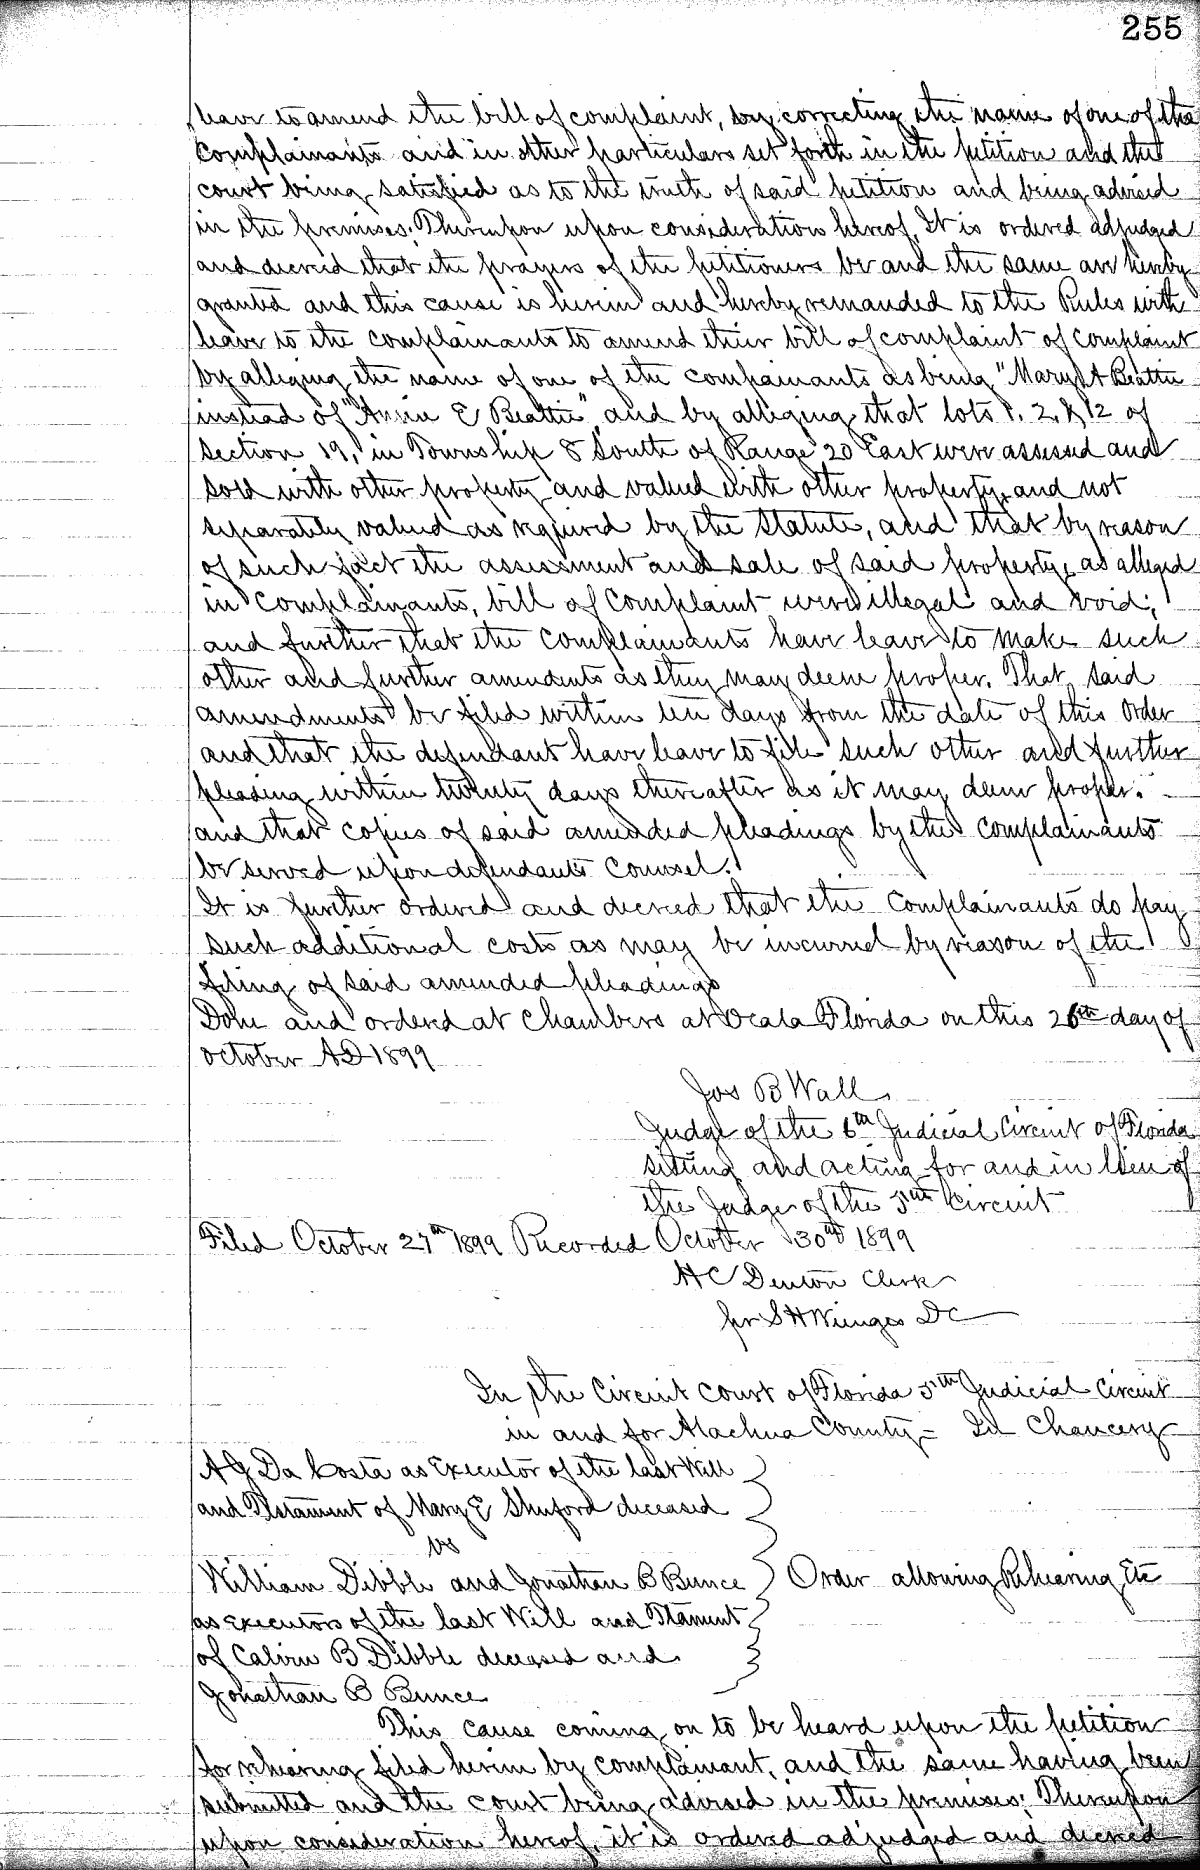 255
leave to amend the bill of complaint, by correcting the name of one of the
Complainants and in other particulars set forth in the petition and the
court being satisfied as to the truth of said petition and being advised
in the premises; Thereupon upon consideration hereof, It is ordered adjudged
and decreed that the prayers of the petitioners be and the same are hereby
granted and this cause is herein and hereby remanded to the Rules with
leave to the complainants to amend their bill of complaint of complaint
by alleging the name of one of the compainants as being "Mary A Beattie
instead of "Annie E Beattie", and by alleging that lots 1. 2. & 12 of
Section 19, in Township 8 South of Range 20 East were assessed and
sold with other property and valued with other property, and not
separately valued as required by the Statute, and that by reason
of such fact the assessment and sale of said property, as alleged
in Complainants, bill of Complaint were illegal and void;
and further that the Complainants have leave to make such
other and further amendents as they may deem proper. That said
amendments be filed within ten days from the date of this Order
and that the defendant have leave to file such other and further
pleading within twenty days thereafter as it may deem proper.
and that copies of said amended pleadings by the complainants
be served upon defendants Counsel.
It is further ordered and decreed that the Complainants do pay
such additional costs as may be incurred by reason of the
filing of said amended pleadings
Done and ordered at Chambers at Ocala Florida on this 26th day of
October AD 1899
Jos B Wall
Judge of the 6th Judicial Circuit of Florida
sitting and acting for and in lieu of
the Judge of the 5th Circuit
Filed October 27th 1899 Recorded October 30th 1899
H C Denton Clerk
pr S H Wienges DC
In the Circuit Court of Florida 5th Judicial Circuit
in and for Alachua County - In Chancery
A G Da Costa as Executor of the last Will
and Testament of Mary E Shuford deceased
vs
William Dibble and Jonathan B Bunce } Order allowing Rehearing Etc
as Executors of the last Will and Tstament
of Calvin B Dibble deceased and
Jonathan B Bunce
This cause coming on to be heard upon the petition
for rehearing filed herein by complainant, and the same having been
submitted and the court being advised in the premises; Thereupon
upon consideration hereof, it is ordered adjudged and decreed